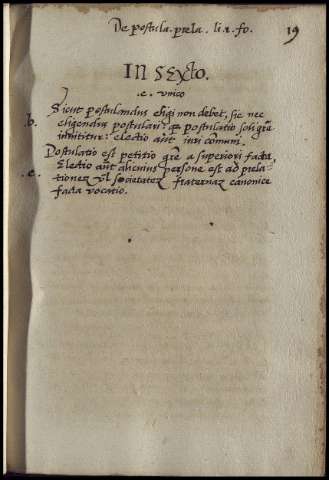 De postula. prela. li. 1. fo. 19
IN SEXTO.
.c. vnico
Sicut postulandus eligi non debet, sic nec
.b. eligendus postulari: qz postulatio soli grē
innititur: electio aūt iuri comuni.
Postulatio est petitio grē a superiori facta,
.c. Electio aūt alicuius persone est ad prela-
tionez vl societatez fraternaz canonice
facta vocatio.